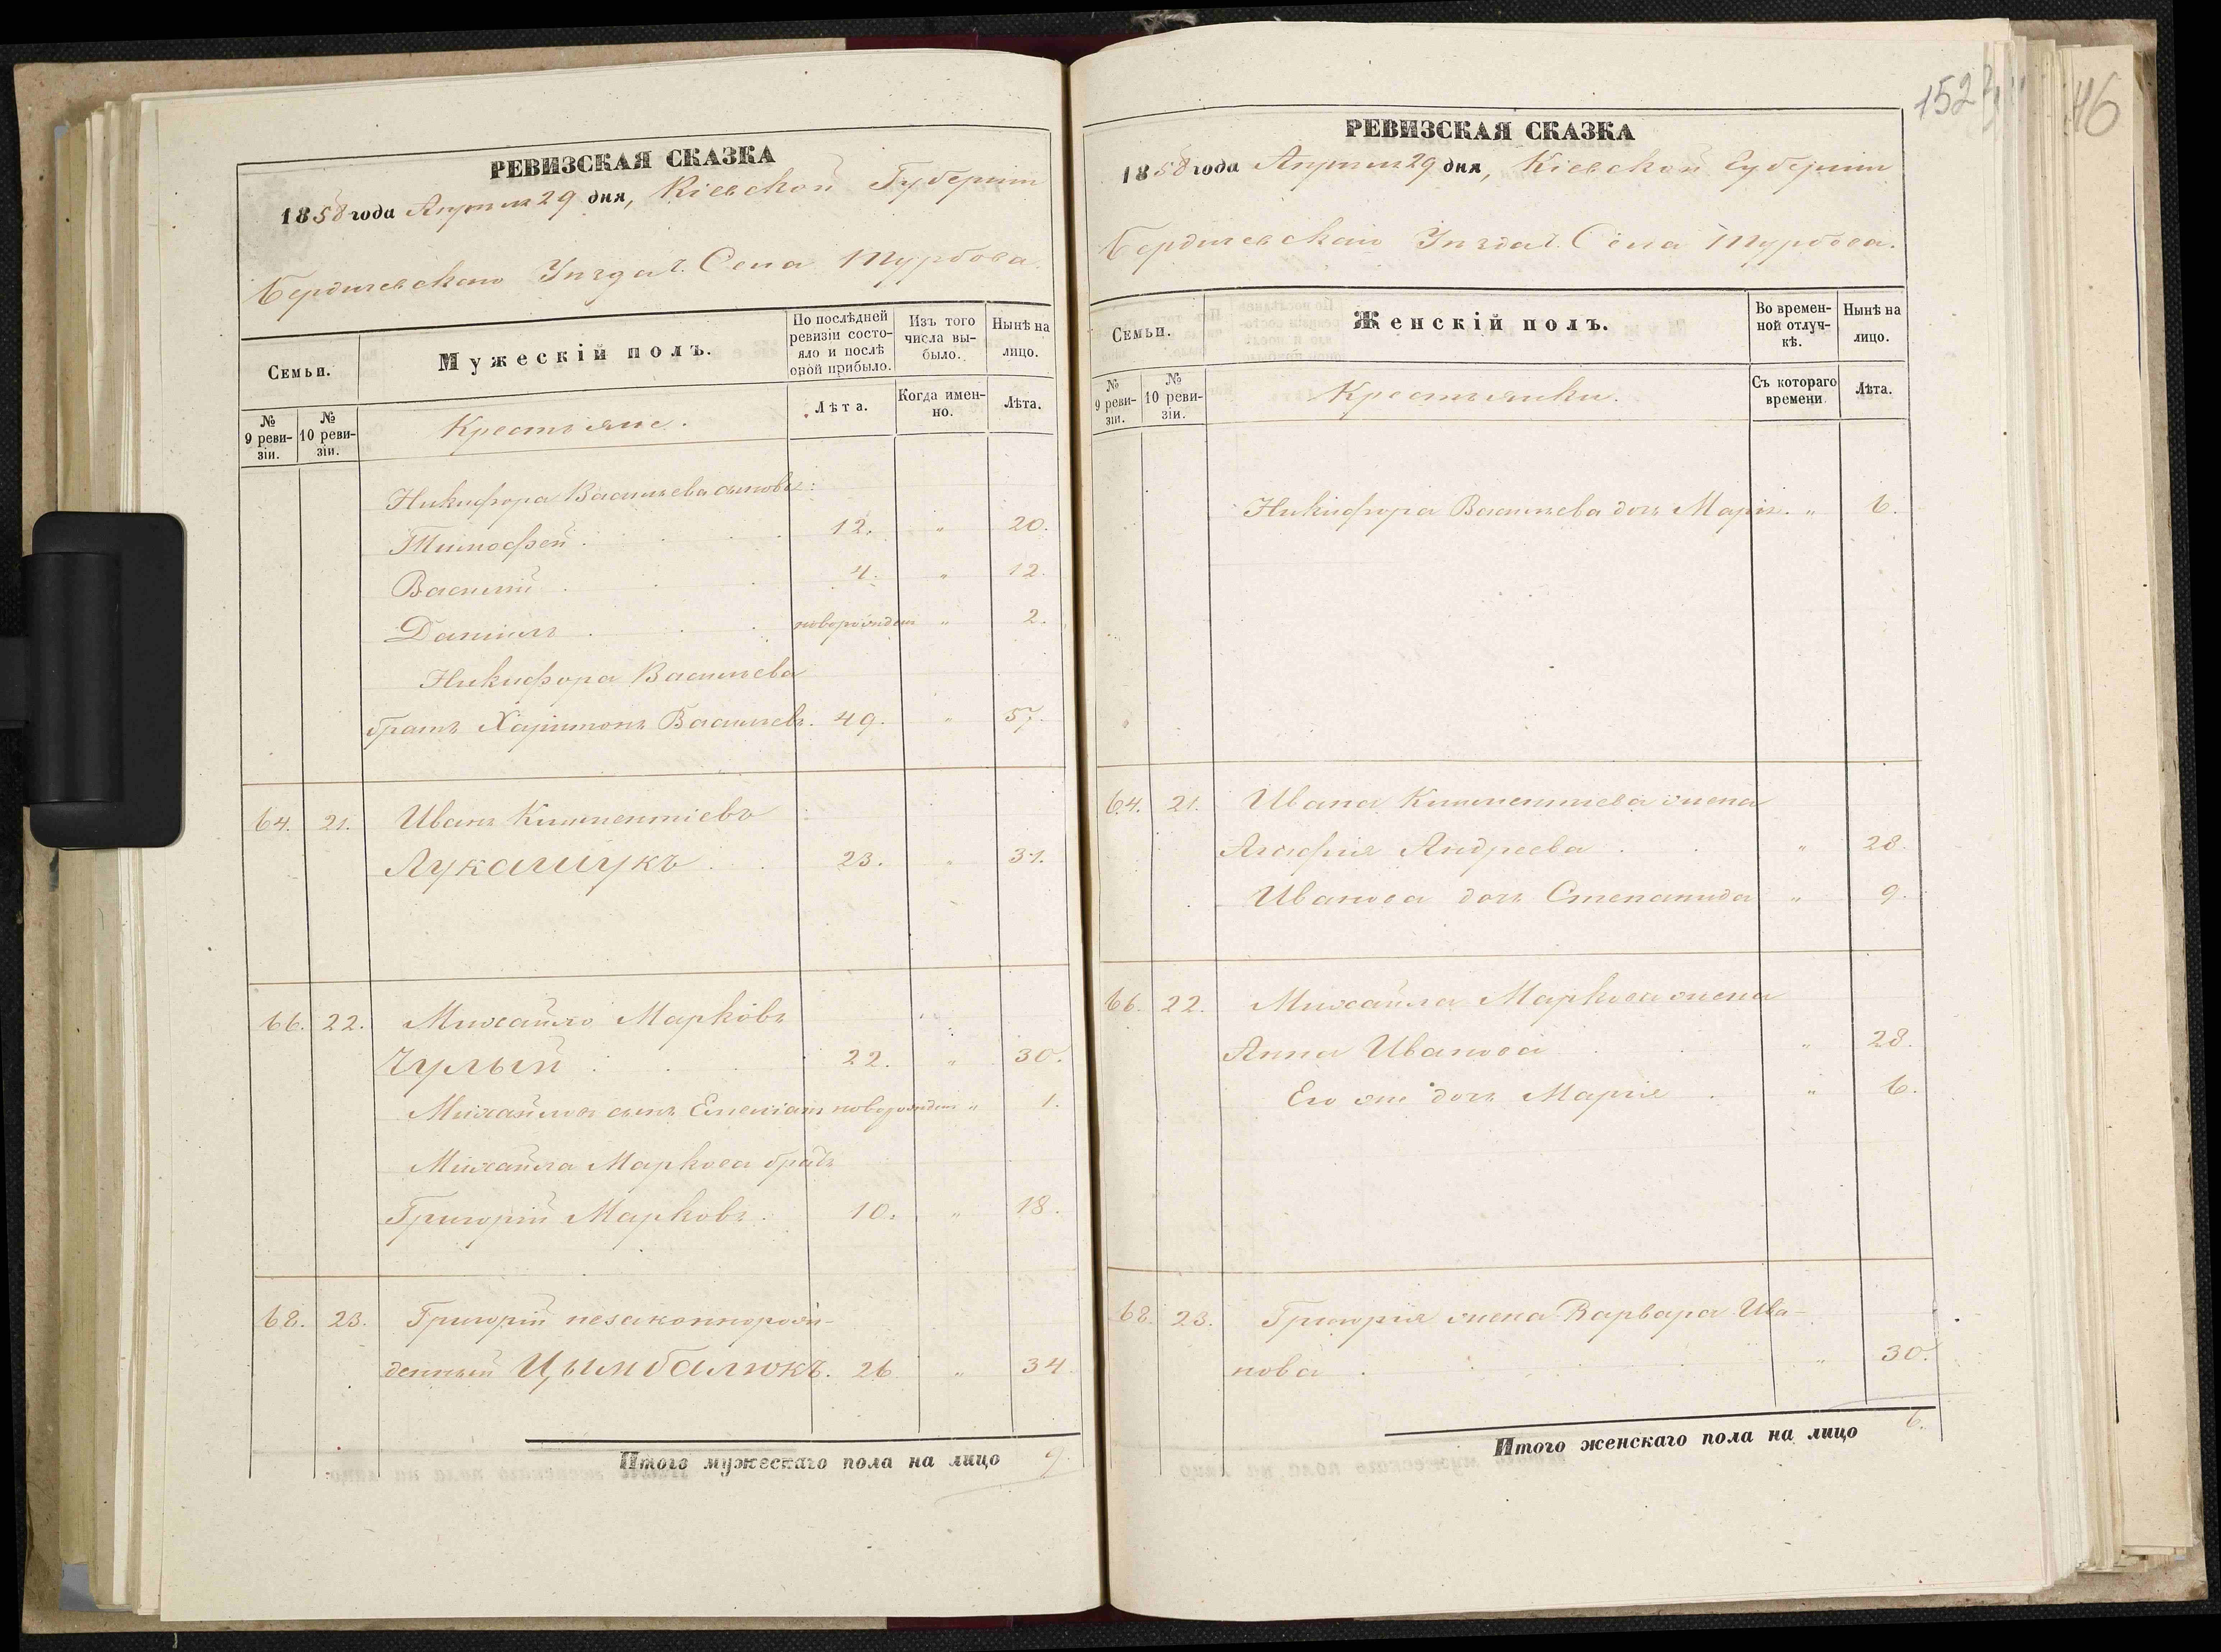 РЕВИЗСКАЯ СКАЗКА
1858 года Апрѣля 29 дня, Кіевской Губерніи
Бердичевскаго Уѣзда с. Села Турбова.
Семьи.
Мужескій полъ.
По послѣдней ревизіи состояло и послѣ оной прибыло.
Изъ того числа выбыло.
Нынѣ на лицо.
№ 9 ревизіи.
№ 10 ревизіи.
Крестьяне.
Лѣта.
Когда именно.
Лѣта.
Никифора Васильева сыновья:
Тимофей . . . 12. " 20.
Василій . . 4. " 12.
Даніилъ . . . новорожден " 2.
Никифора Васильева
братъ Харитонъ Васильевъ. 49. " 57.
64. 21. Иванъ Климентіевъ
Лукашукъ . . 23. " 31.
66. 22. Михайло Марковъ
Чулый . . . 22. " 30.
Михайлы сынъ Емеліанъ новорожден " 1.
Михайла Маркова братъ
Григорій Марковъ. 10. " 18.
68. 23. Григорій незаконнорож-
денный Цымбалюкъ. 26. " 34
Итого мужескаго пола на лицо 9.
152
46
РЕВИЗСКАЯ СКАЗКА
1858 года Апрѣля 29 дня, Кіевской Губерніи
Бердичевскаго Уѣзда с. Села Турбова.
Семьи.
Женскій полъ.
Во временной отлучкѣ.
Нынѣ на лицо.
№ 9 ревизіи.
№ 10 ревизіи.
Крестьянки.
Съ котораго времени
Лѣта.
Никифора Васильева дочь Марія. " 6.
64. 21. Ивана Климентіева жена
Агафія Андреева . . " 28.
Иванова дочь Степанида " 9.
66. 22. Михайла Маркова жена
Анна Иванова . . " 28.
Его же дочь Марія . " 6.
68. 23. Григорія жена Варвара Ива-
нова . . . " 30.
Итого женскаго пола на лицо 6.